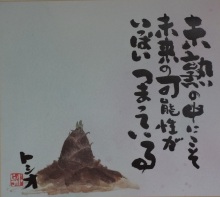 未熟の中にこそ
未来の可能性が
いっぱい つまっている
トシオ